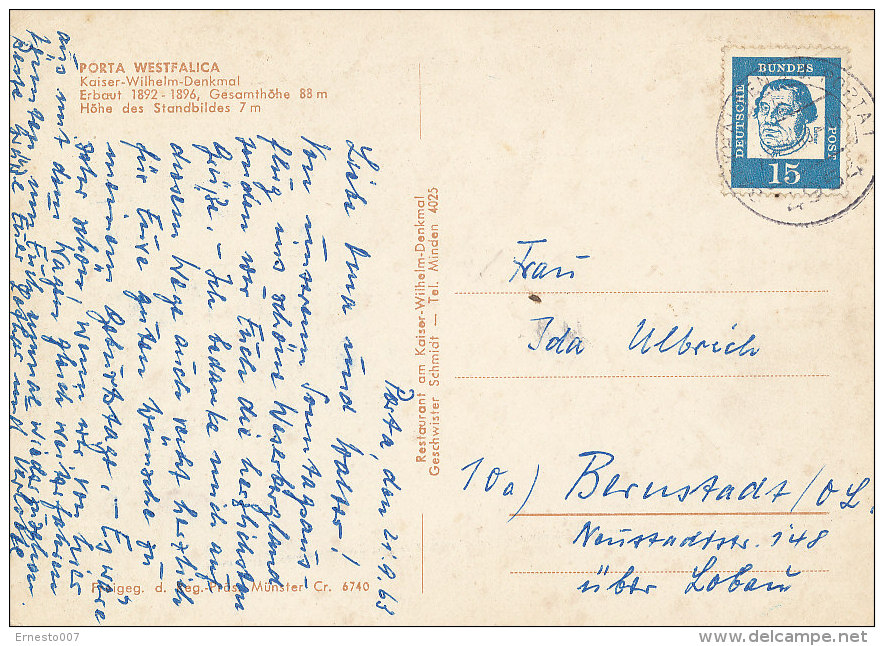 PORTA WESTFALICA
Kaiser-Wilhelm-Denkmal
Erbaut 1892 - 1896, Gesamthöhe 88 m
Höhe des Standbildes 7 m
Porta, den 21.9.63
Liebe Oma und Walter!
Von unserem Sonntagsaus-
flug ins schöne Weserbergland
senden wir Euch die herzlichsten
Grüße. – Ich bedanke mich auf
diesem Wege auch recht herzlich
für Eure guten Wünsche zu
meinem Geburtstage. – Es wäre
sehr schön, wenn wir von hier
aus mit dem Wagen gleich weiterfahren
könnten um Euch einmal wiederzusehen.
Beste Grüße Euer Lothar und
Restaurant am Kaiser-Wilhelm-Denkmal
Geschwister Schmidt — Tel. Minden 4025
Freigeg. d. Reg.-Präs. Münster Cr. 6740
DEUTSCHE
BUNDES
POST
15
Frau
Ida Ulbrich
10a) Bernstadt/OL.
Neustadtstr. 148
über Löbau
Ernesto007
delcampe.net